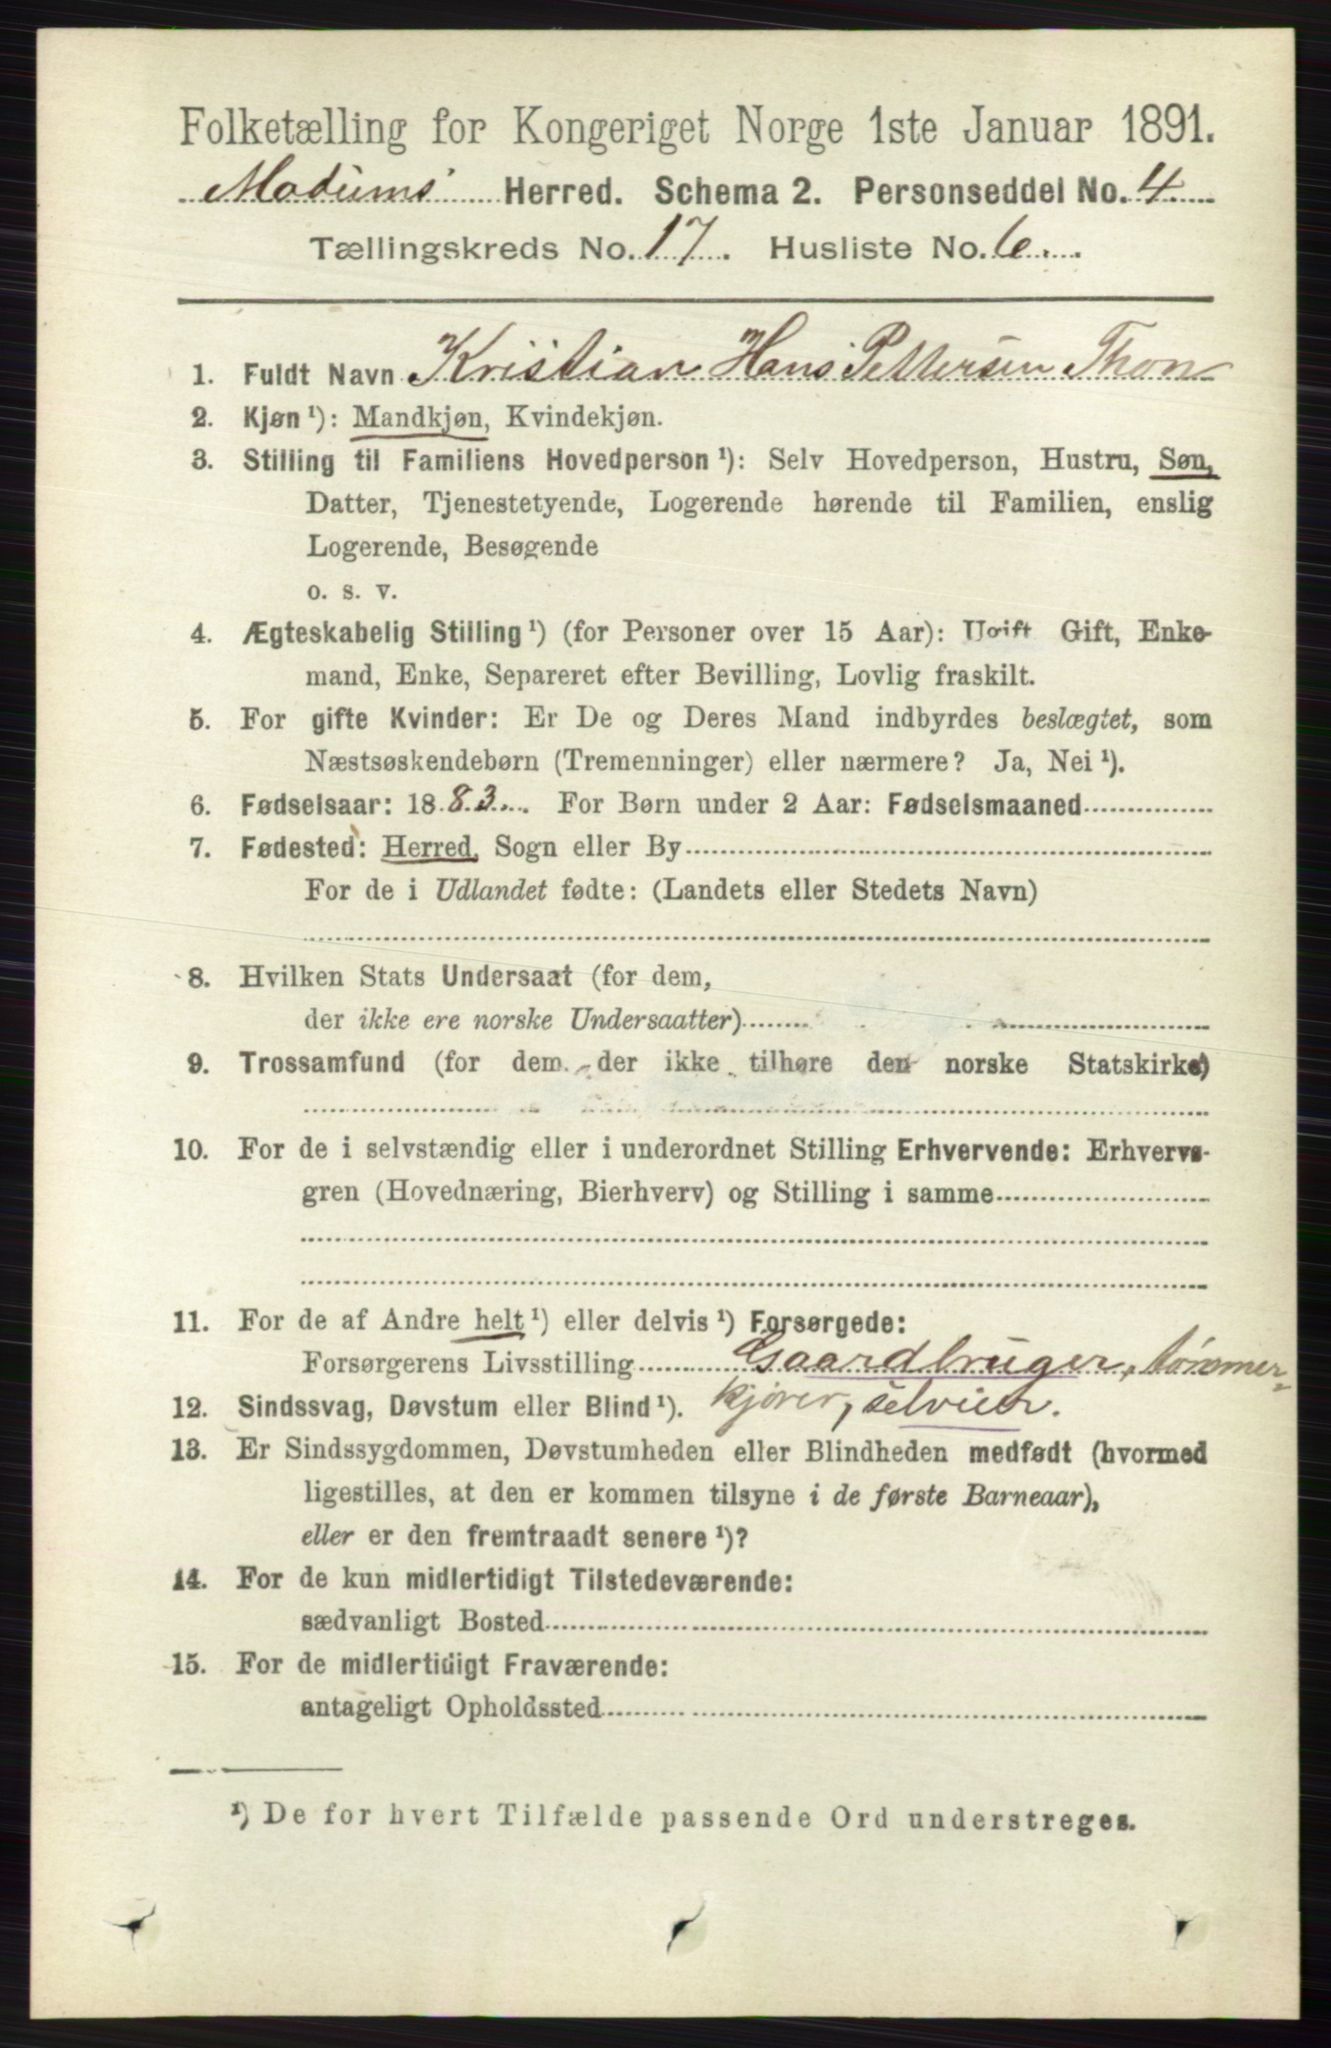 Folketælling for Kongeriget Norge 1ste Januar 1891.
Modums Herred. Schema 2. Personseddel No. 4
Tællingskreds No. 17. Husliste No. 6.
1. Fuldt Navn Kristian Hans Pettersen Thon
2. Kjøn ¹): Mandkjøn, Kvindekjøn.
3. Stilling til Familiens Hovedperson ¹): Selv Hovedperson, Hustru, Søn,
Datter, Tjenestetyende, Logerende hørende til Familien, enslig
Logerende, Besøgende
o. s. v.
4. Ægteskabelig Stilling ¹) (for Personer over 15 Aar): Ugift Gift, Enke-
mand, Enke, Separeret efter Bevilling, Lovlig fraskilt.
5. For gifte Kvinder: Er De og Deres Mand indbyrdes beslægtet, som
Næstsøskendebørn (Tremenninger) eller nærmere? Ja, Nei ¹).
6. Fødselsaar: 1883. For Børn under 2 Aar: Fødselsmaaned
7. Fødested: Herred, Sogn eller By
For de i Udlandet fødte: (Landets eller Stedets Navn)
8. Hvilken Stats Undersaat (for dem,
der ikke ere norske Undersaatter)
9. Trossamfund (for dem der ikke tilhøre den norske Statskirke)
10. For de i selvstændig eller i underordnet Stilling Erhvervende: Erhvervs-
gren (Hovednæring, Bierhverv) og Stilling i samme
11. For de af Andre helt ¹) eller delvis ¹) Forsørgede:
Forsørgerens Livsstilling Gaardbruger, tømmer-
12. Sindssvag, Døvstum eller Blind ¹). kjører, selveier.
13. Er Sindssygdommen, Døvstumheden eller Blindheden medfødt (hvormed
ligestilles, at den er kommen tilsyne i de første Barneaar),
eller er den fremtraadt senere ¹)?
14. For de kun midlertidigt Tilstedeværende:
sædvanligt Bosted
15. For de midlertidigt Fraværende:
antageligt Opholdssted
¹) De for hvert Tilfælde passende Ord understreges.